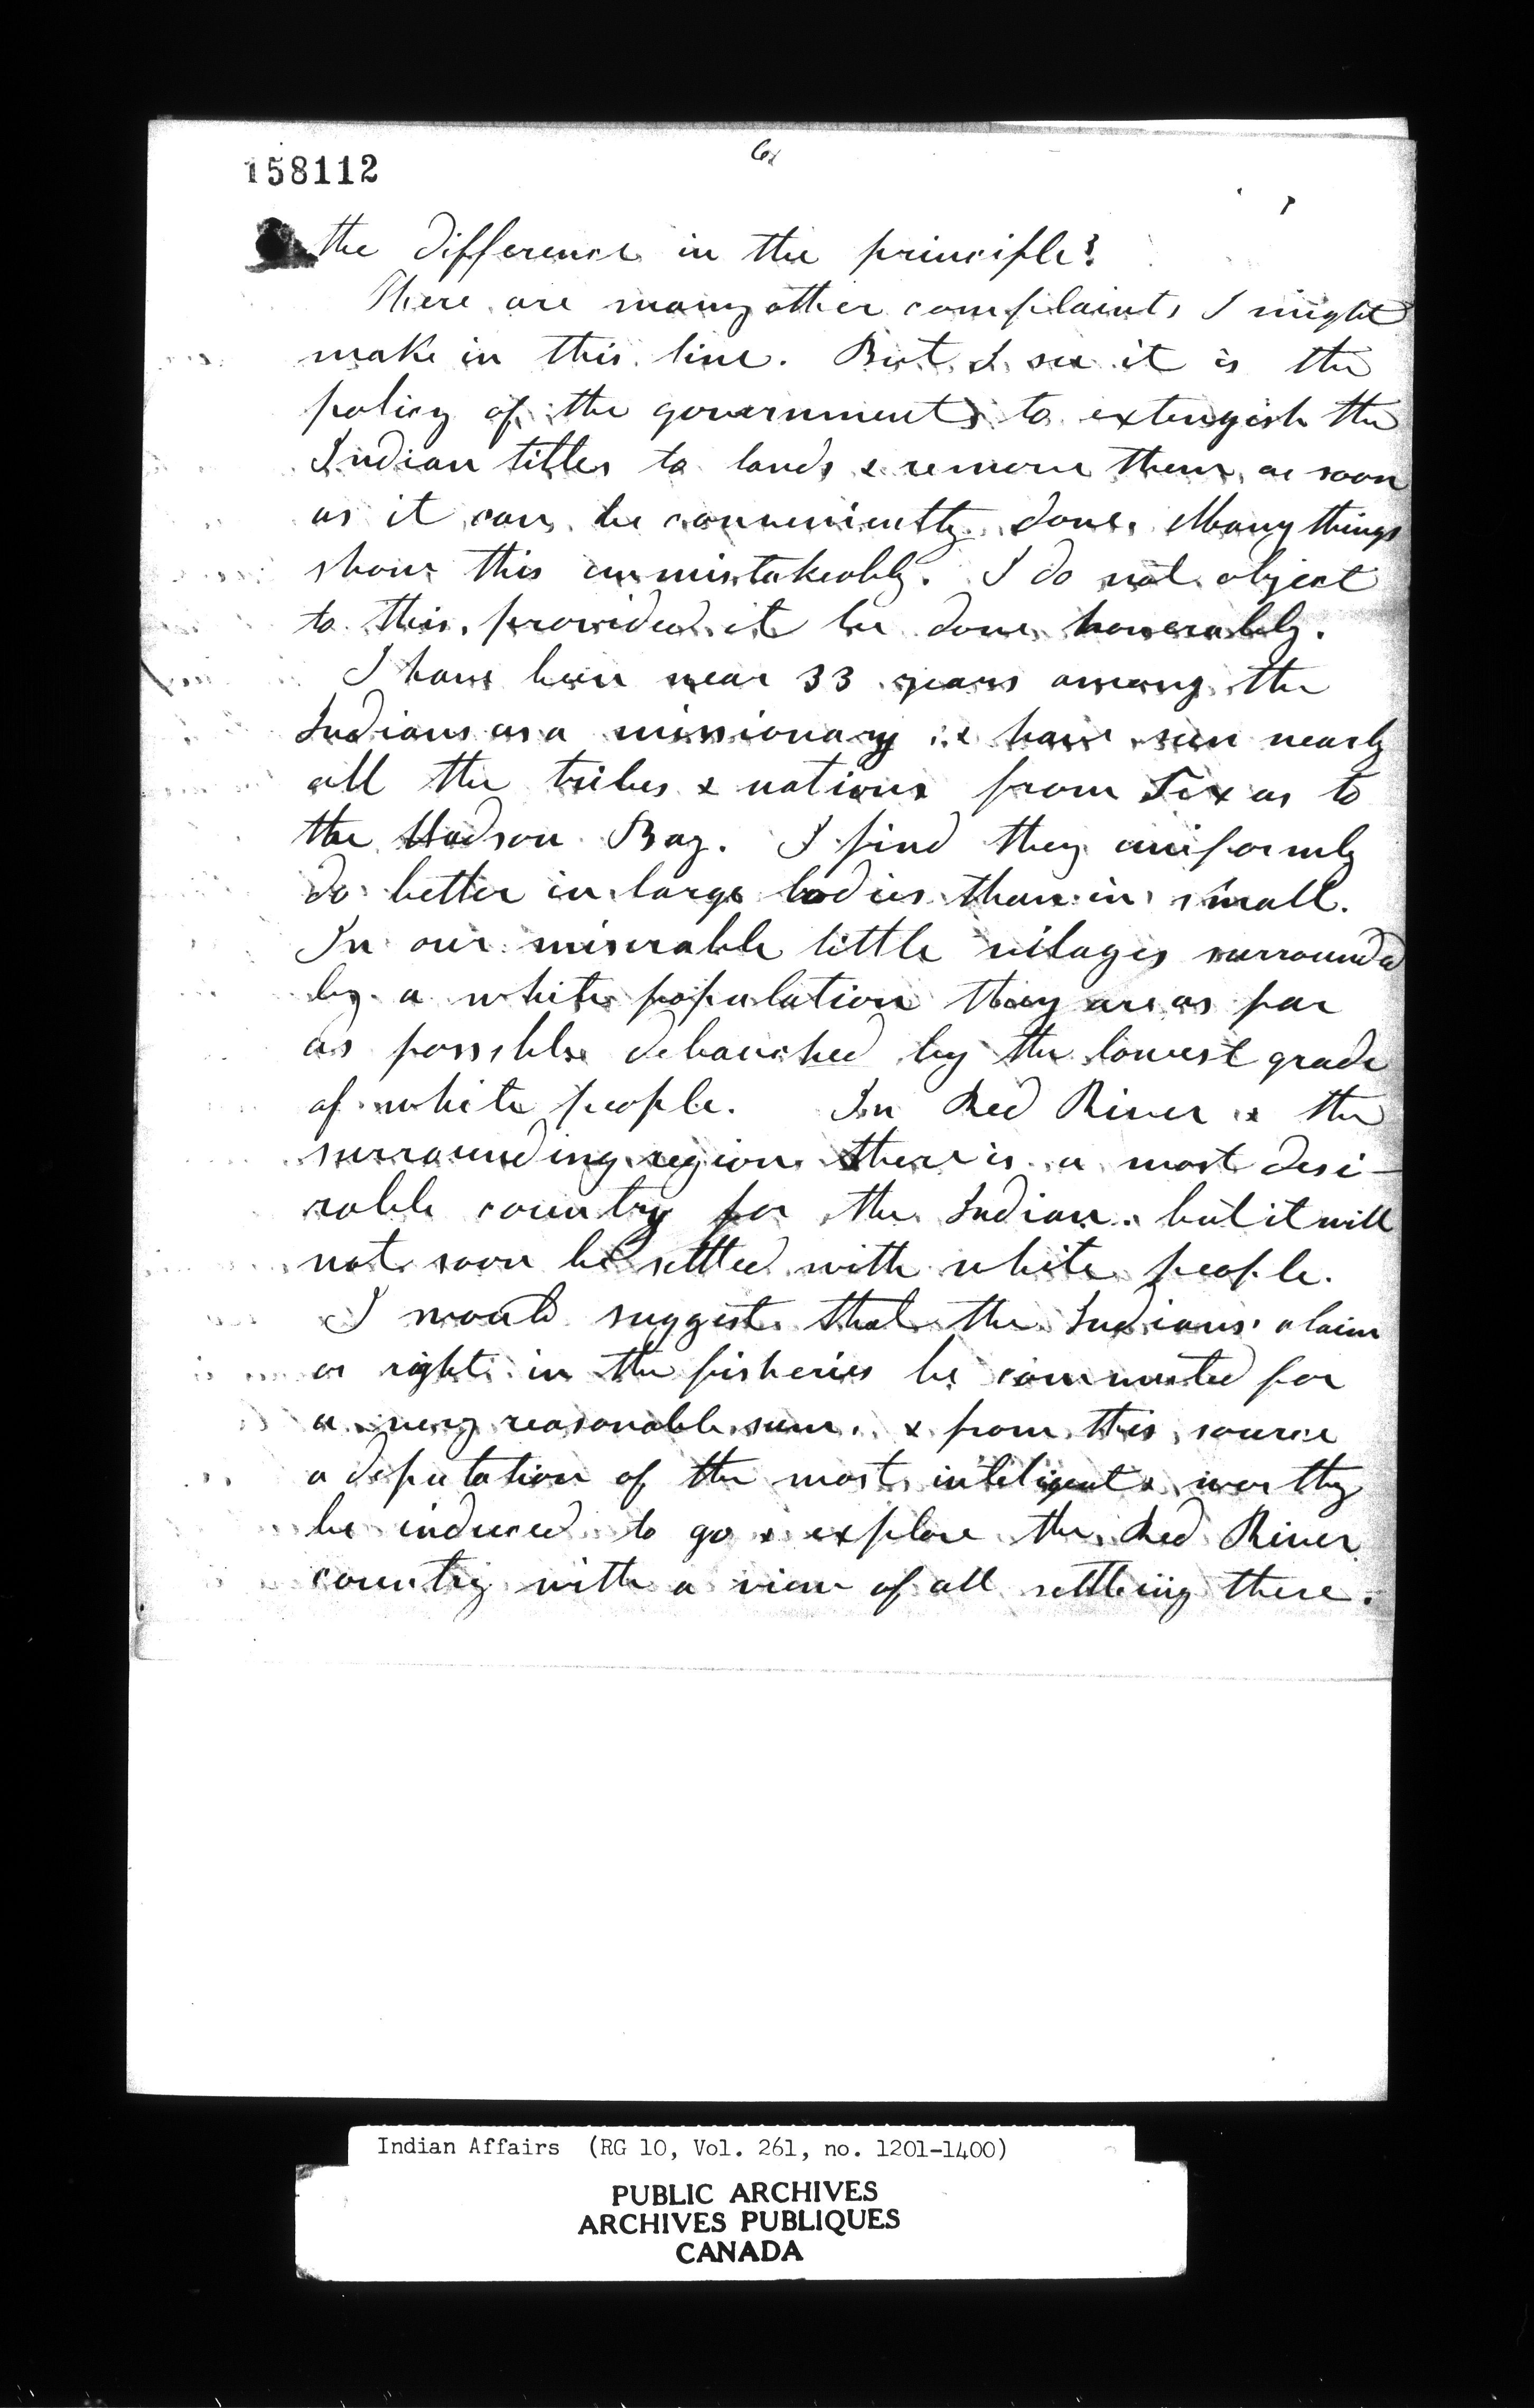 158112
6
the difference in the principle?
There are many other complaints I might
make in this line. But I see it is the
policy of the government to extengish the
Indian titles to lands & remove them as soon
as it can be conveniently done. Many things
show this unmistakeably. I do not object
to this, provided it be done honerably.
I have been near 33 years among the
Indians as a missionary & have seen nearly
all the tribes & nations from Texas to
the Hudson Bay. I find they uniformly
do better in large bodies than in small.
In our miserable little vilages surrounded
by a white population they are as far
as possible debauched by the lowest grade
of white people. In Red River & the
surrounding region there is a most desi-
rable country for the Indian. but it will
not soon be settled with white people.
I would suggest that the Indians' claim
or right in the fisheries be commuted for
a very reasonable sum. & from this source
a deputation of the most inteligent & worthy
be induced to go & explore the Red River
country with a view of all settleing there.
Indian Affairs (RG 10, Vol. 261, no. 1201-1400)
PUBLIC ARCHIVES
ARCHIVES PUBLIQUES
CANADA